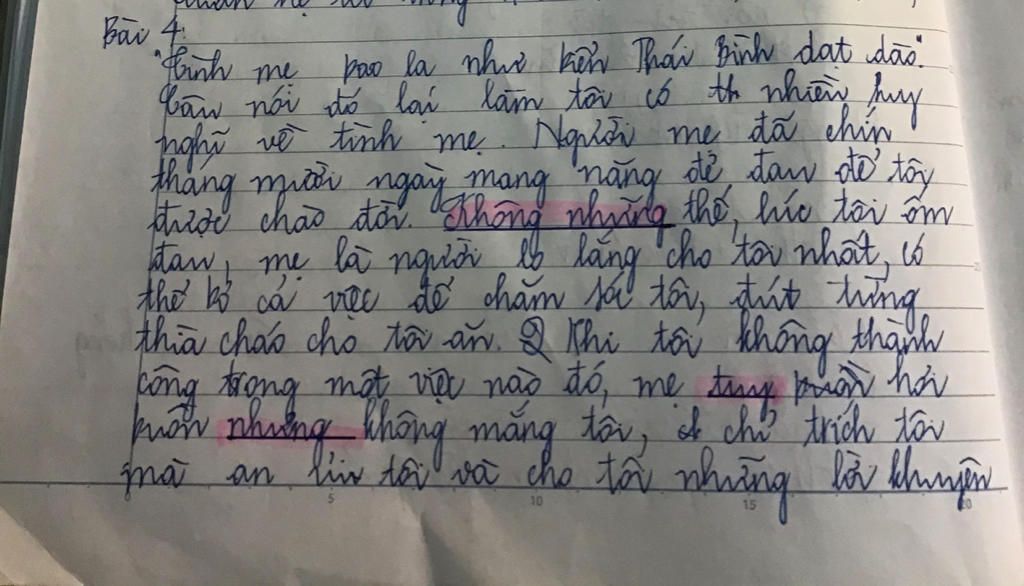 Bài 4:
"Tình mẹ bao la như biển Thái Bình dạt dào"
Câu nói đó lại làm tôi có nhiều suy
nghĩ về tình mẹ. Người mẹ đã chín
tháng mười ngày mang nặng đẻ đau để tôi
được chào đời. Không những thế, lúc tôi ốm
đau, mẹ là người lo lắng cho tôi nhất, có
thể bỏ cả việc để chăm sóc tôi, đút từng
thìa cháo cho tôi ăn. Khi tôi không thành
công trong một việc nào đó, mẹ tuy buồn hơi
buồn nhưng không mắng tôi, chỉ trích tôi
mà an ủi tôi và cho tôi những lời khuyên